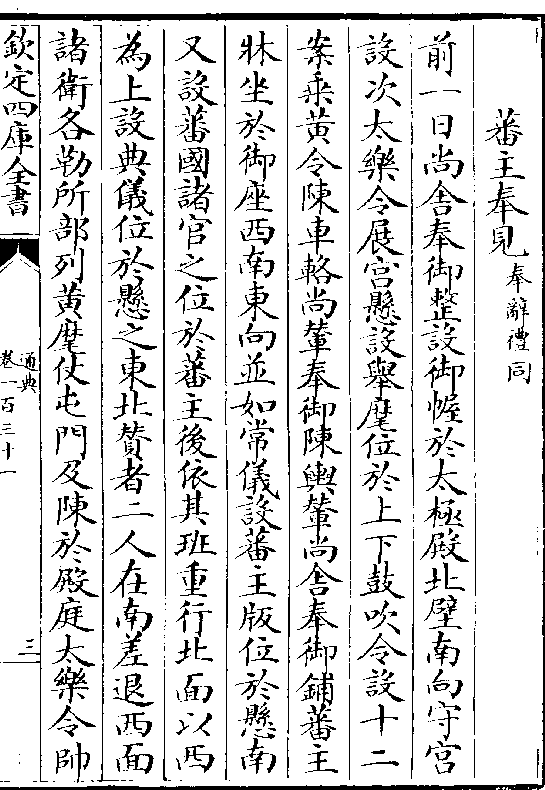 蕃主奉見奉辭禮同
前一日尚舍奉御整設御幄於太極殿北壁南向守宮
設次太樂令展宮懸設舉麾位於上下鼓吹令設十二
案乗黄令陳車輅尚輦奉御陳輿輦尚舎奉御鋪蕃主
牀坐於御座西南東向並如常儀設蕃主版位於懸南
又設蕃國諸官之位於蕃主後依其班重行北面以西
為上設典儀位於懸之東北賛者二人在南差退西面
諸衛各勒所部列黄麾仗屯門及陳於殿庭太樂令帥
欽定四庫全書
通典
卷一百三十一
三